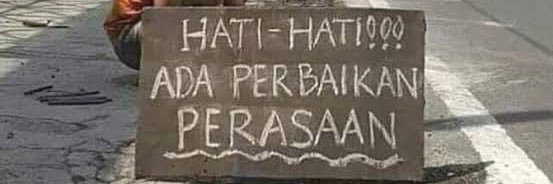 HATI-HATI!!!
ADA PERBAIKAN
PERASAAN